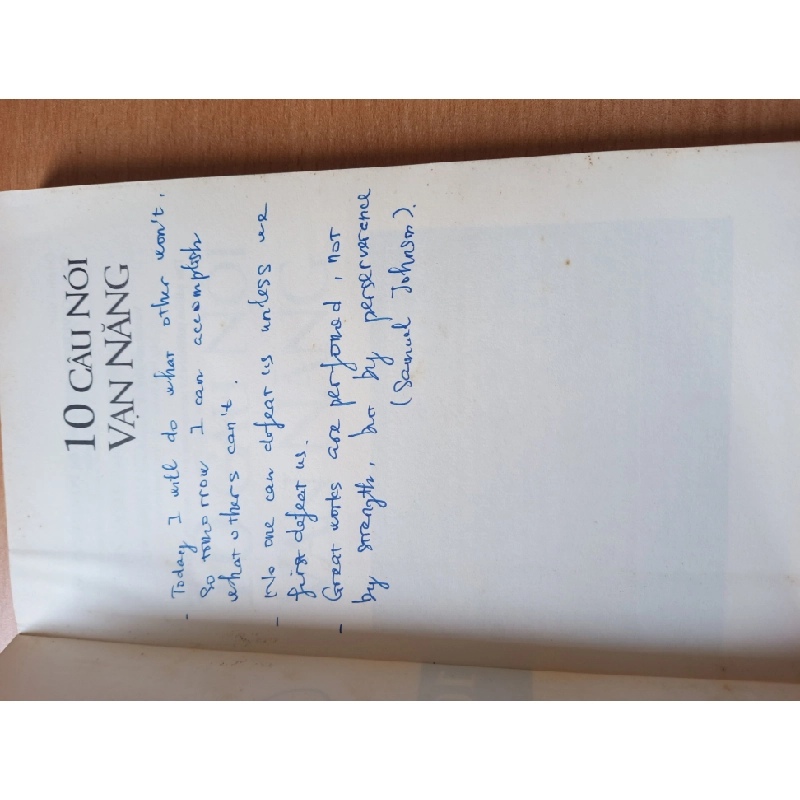 10 CÂU NÓI
VẠN NĂNG
- Today I will do what other won't,
so tomorrow I can accomplish
what others can't.
- No one can defeat us unless we
first defeat us.
- Great works are perfomed, not
by strength, but by perserverance
(Samuel Johnson).